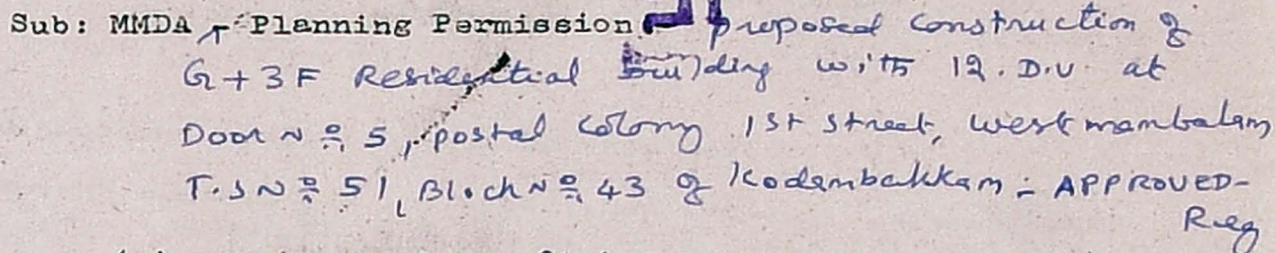 Sub: MMDA - Planning Permission - proposed construction of
G+3F Residential building with 12.D.U. at
Door No 5, postal colony 1st street, west mambalam
T.S No 51, Block No 43 of Kodambakkam - APPROVED-
Reg